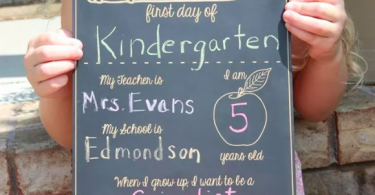 first day of
Kindergarten
My Teacher is
I am
Mrs. Evans
5
My School is
Edmondson
years old
When I grow up, I want to be a